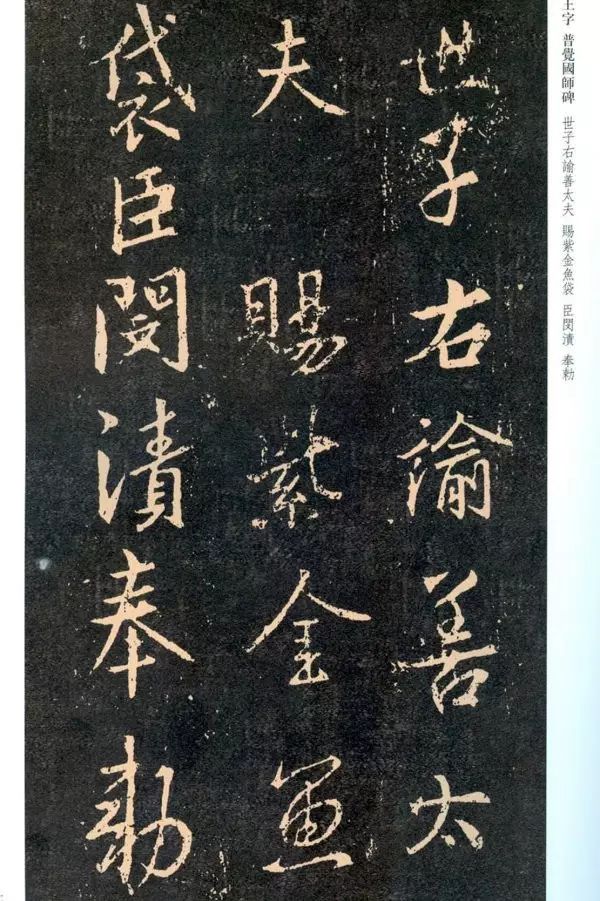 王字 普覺國師碑 世子右諭善太夫 賜紫金魚袋 臣閔漬 奉勅
世子右諭善太
夫 賜紫金魚
袋臣閔漬奉勅